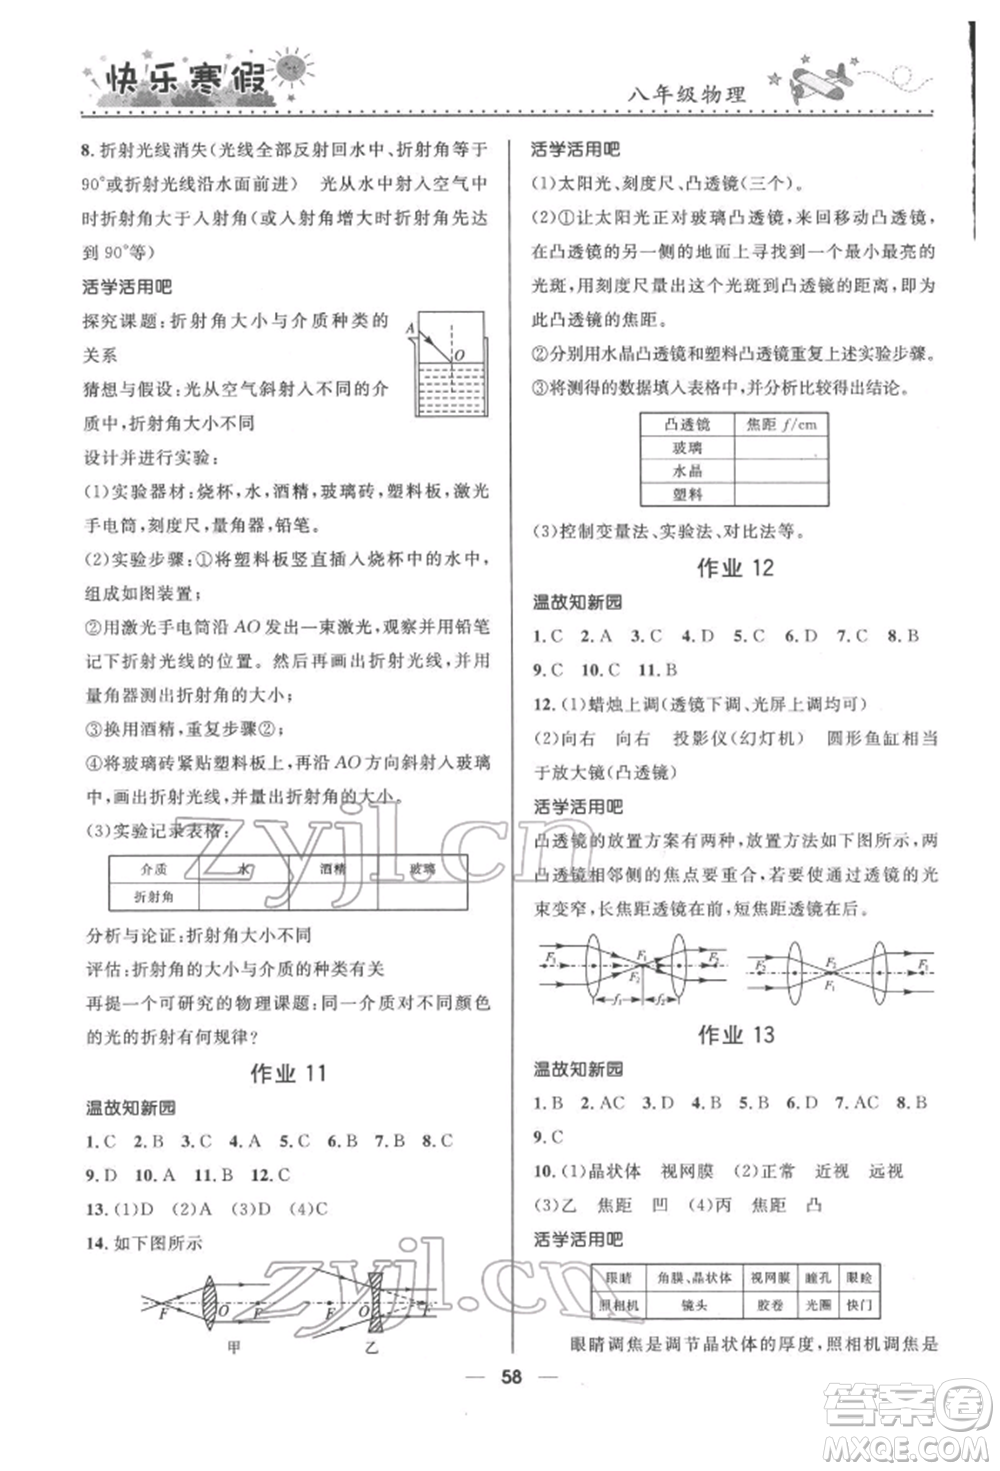 快乐寒假
八年级物理
8. 折射光线消失(光线全部反射回水中、折射角等于
90°或折射光线沿水面前进) 光从水中射入空气中
时折射角大于入射角(或入射角增大时折射角先达
到 90°等)
活学活用吧
探究课题:折射角大小与介质种类的
关系
猜想与假设:光从空气斜射入不同的介
质中,折射角大小不同
A
O
设计并进行实验:
(1)实验器材:烧杯,水,酒精,玻璃砖,塑料板,激光
手电筒,刻度尺、量角器,铅笔。
(2)实验步骤:①将塑料板竖直插入烧杯中的水中,
组成如图装置;
②用激光手电筒沿 AO 发出一束激光,观察并用铅笔
记下折射光线的位置。然后再画出折射光线,并用
量角器测出折射角的大小;
③换用酒精,重复步骤②;
④将玻璃砖紧贴塑料板上,再沿 AO 方向斜射入玻璃
中,画出折射光线,并量出折射角的大小。
(3)实验记录表格:
介质 水 酒精 玻璃
折射角
分析与论证:折射角大小不同
评估:折射角的大小与介质的种类有关
再提一个可研究的物理课题:同一介质对不同颜色
的光的折射有何规律?
作业 11
温故知新园
1. C 2. B 3. C 4. A 5. C 6. C 7. B 8. C
9. D 10. A 11. B 12. C
13. (1)D (2)A (3)B (4)C
14. 如下图所示
F O F F O F
甲 乙
活学活用吧
(1)太阳光、刻度尺、凸透镜(三个)。
(2)①让太阳光正对玻璃凸透镜,来回移动凸透镜,
在凸透镜的另一侧的地面上寻找一个最小最亮的
光斑,用刻度尺量出这个光斑到凸透镜的距离,即为
此凸透镜的焦距。
②分别用水晶凸透镜和塑料凸透镜重复上述实验步骤。
③将测得的数据填入表格中,并分析比较得出结论。
凸透镜 焦距 f/cm
玻璃
水晶
塑料
(3)控制变量法、实验法、对比法等。
作业 12
温故知新园
1. C 2. A 3. C 4. D 5. D 6. D 7. C 8. B
9. C 10. C 11. B
12. (1)蜡烛上调(透镜下调、光屏上调均可)
(2)向右 向右 投影仪(幻灯机) 圆形鱼缸相当
于放大镜(凸透镜)
活学活用吧
凸透镜的放置方案有两种,放置方法如下图所示,两
凸透镜相邻侧的焦点要重合,若要使通过透镜的光
束变窄,长焦距透镜在前,短焦距透镜在后。
F₁ F₁ F₂ F₂ F₂ F₁ F₁
f₁ f₂
作业 13
温故知新园
1. B 2. AC 3. D 4. B 5. D 6. D 7. AC 8. B
9. C
10. (1)晶状体 视网膜 (2)正常 近视 远视
(3)乙 焦距 凹 (4)丙 焦距 凸
活学活用吧
眼睛 角膜、晶状体 视网膜 瞳孔 眼睑
照相机 镜头 胶卷 光圈 快门
眼睛调焦是调节晶状体的厚度,照相机调焦是
58
zyjl.cn
zyjl.cn
答案卷
MXQE.COM